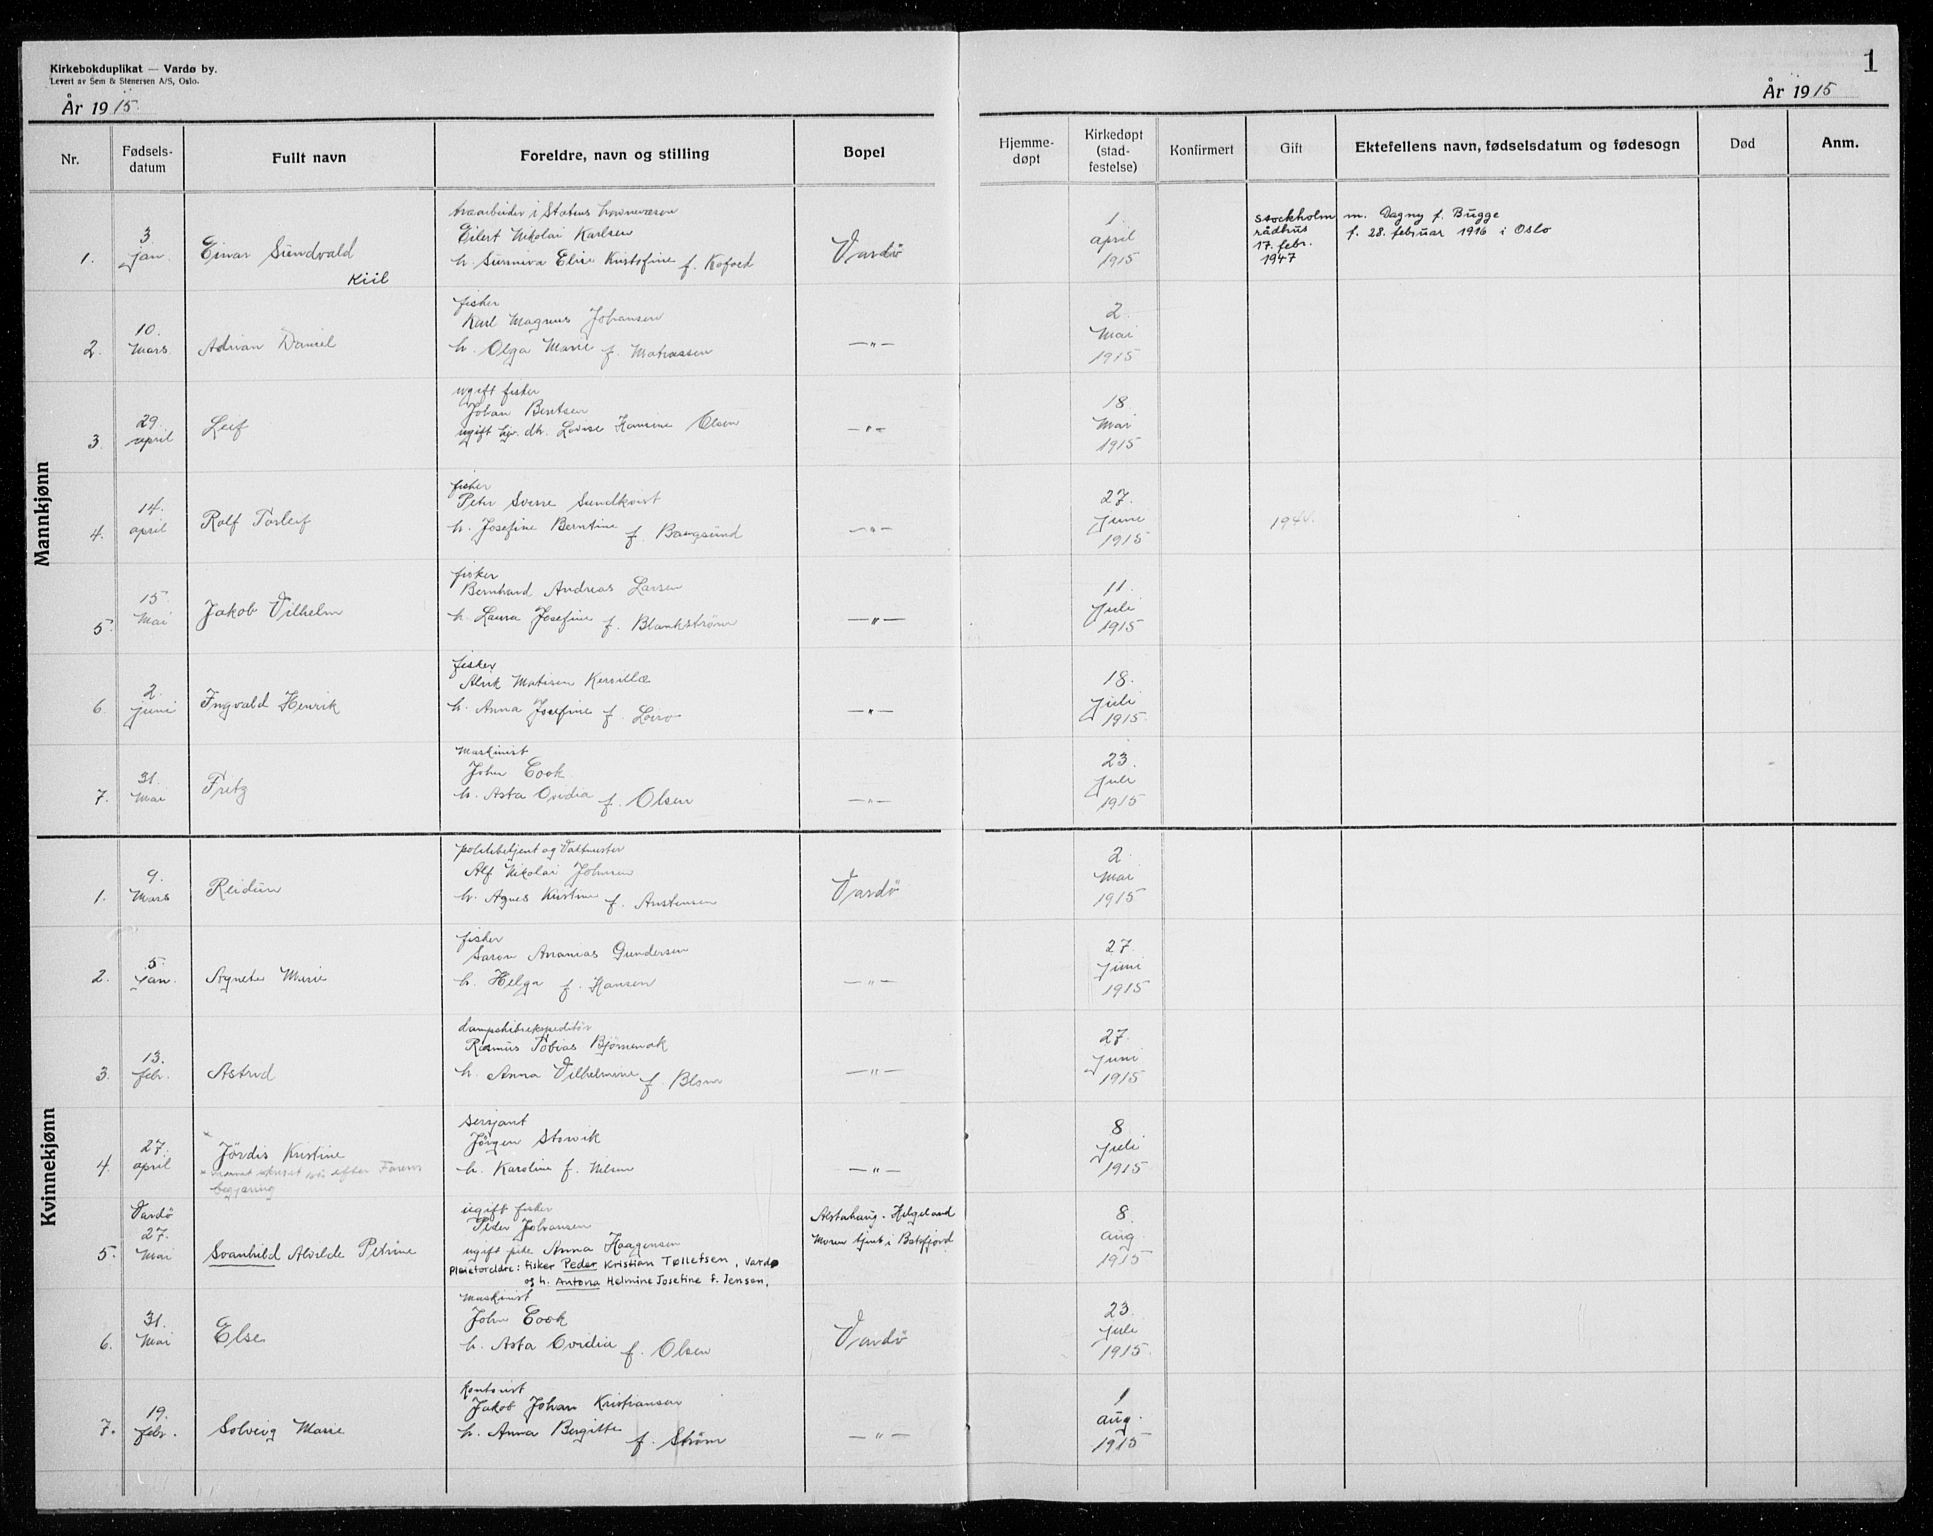 Kirkebokduplikat — Vardø by.
Levert av Sem & Stenersen A/S, Oslo.
År 1915.
1
År 1915
Nr.
Fødsels-
datum
Fullt navn
Foreldre, navn og stilling
Bopel
Hjemme-
døpt
Kirkedøpt
(stad-
festelse)
Konfirmert
Gift
Ektefellens navn, fødselsdatum og fødesogn
Død
Anm.
Mannkjønn
1.
3.
jan.
Einar Sundvald
Kiil
i Statens havnevæsen
Eilert Nikolai Karlsen
h. Sunniva Elise Kristofine f. Kofoed
Vardö
1.
april
1915
Stockholm
rådhus
17. febr.
1947
m. Dagny f. Bugge
f. 28. februar 1916 i Oslo
2.
10.
Mars.
Adrian Daniel
fisker
Karl Magnus Johansen
h. Olga Marie f. Mathiassen
—"—
2.
Mai
1915
3.
29.
april
Leif
ugift fisker
Johan Bentsen
ugift hjv. dh. Lovise Hansine Olsen
—"—
18
Mai
1915
4.
14.
april
Rolf Torleif
fisker
Peter Sverre Sundkvist
h. Josefine Berntine f. Bangsund
—"—
27.
Juni
1915
1944.
5.
15.
Mai
Jakob Vilhelm
fisker
Bernhard Andreas Larsen
h. Laura Josefine f. Blankström
—"—
11.
Juli
1915
6.
2.
juni
Ingvald Henrik
fisker
Alrik Matisen
h. Anna Josefine f.
—"—
18.
Juli
1915.
7.
31.
Mai
Fritz
Maskinist
John Cook
h. Asta Ovidia f. Olsen
—"—
23.
Juli
1915
Kvinnekjønn
1.
9.
Mars
Reidun
politibetjent og Vaktmester
Alf Nikolai Johnsen
h. Agnes Kristine f. Anstensen
Vardö
2.
Mai
1915
2.
5.
Jan.
Agnete Marie
fisker
Saron Ananias Gundersen
h. Helga f. Hansen
—"—
27.
Juni
1915
3.
13.
febr.
Astrid
dampskibsekspeditör
Rasmus Tobias
h. Anna Vilhelmine f.
—"—
27.
Juni
1915
4.
27.
april
× Jördis Kristine
× navnet skrevet efter Farens
begjæring
sersjant
Jörgen Storvik
h. Karoline f. Nilsen
—"—
8
Juli
1915
5.
Vardö
27.
Mai
Svanhild Alvilde Petrine
ugift fisker
Peder Johansen
ugift pike Anna Haagensen
Pleieforeldre: fisker Peder Kristian Tølletsen, Vardø
og h. Antona Helmine Josefine f. Jensen.
Alstahaug. Helgeland
Moren tjent i Batsfjord
8.
aug.
1915
6.
31.
Mai
Else
Maskinist
John Cook
h. Asta Ovidia f. Olsen
Vardö
23.
Juli
1915.
7.
19.
febr.
Solveig Marie
Kontorist
Jakob Johan Kristiansen
h. Anna Bergitte f. Ström
—"—
1
aug.
1915